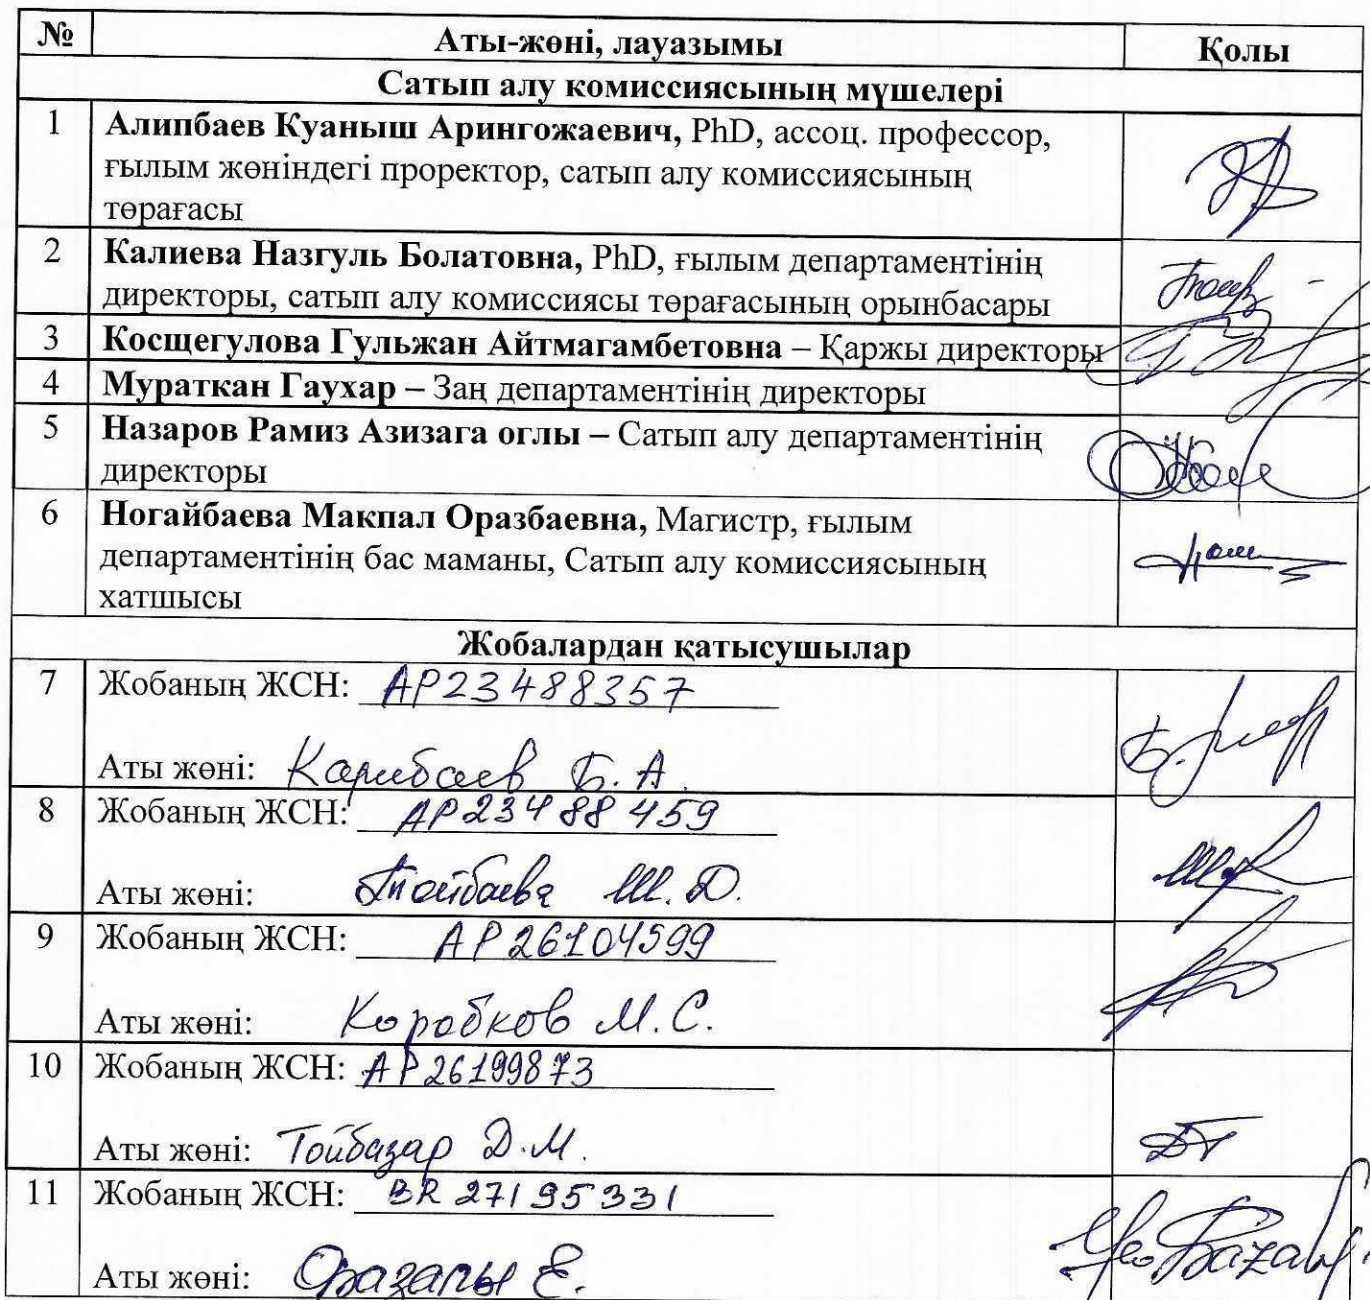 № Аты-жөні, лауазымы Қолы
Сатып алу комиссиясының мүшелері
1 Алипбаев Куаныш Арингожаевич, PhD, ассоц. профессор,
ғылым жөніндегі проректор, сатып алу комиссиясының
төрағасы
2 Калиева Назгуль Болатовна, PhD, ғылым департаментінің
директоры, сатып алу комиссиясы төрағасының орынбасары
3 Косщегулова Гульжан Айтмагамбетовна – Қаржы директоры
4 Мураткан Гаухар – Заң департаментінің директоры
5 Назаров Рамиз Азизага оглы – Сатып алу департаментінің
директоры
6 Ногайбаева Макпал Оразбаевна, Магистр, ғылым
департаментінің бас маманы, Сатып алу комиссиясының
хатшысы
Жобалардан қатысушылар
7 Жобаның ЖСН: AP23488357
Аты жөні: Карибаев Б. А.
8 Жобаның ЖСН: AP23488459
Аты жөні: Тойбаева Ш. Д.
9 Жобаның ЖСН: AP26104599
Аты жөні: Коробков М. С.
10 Жобаның ЖСН: AP26199873
Аты жөні: Тойбазар Д. М.
11 Жобаның ЖСН: BR27195331
Аты жөні: Е.